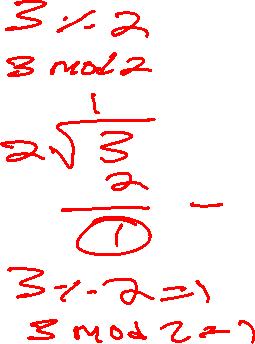 3 % 2
3 mod 2
1
2√3
2
-
1
3 % 2 = 1
3 mod 2 = 1